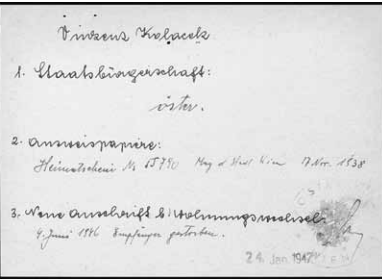 Vinzenz Kolacek
1. Staatsbürgerschaft:
öster.
2. Ausweispapiere:
Heimatschein Nr 15790 Mag d Stadt Wien 17 Nov. 1938
3. Neue Anschrift b. Wohnungswechsel:
4. Juni 1946 Empfänger gestorben.
24. Jan. 1947